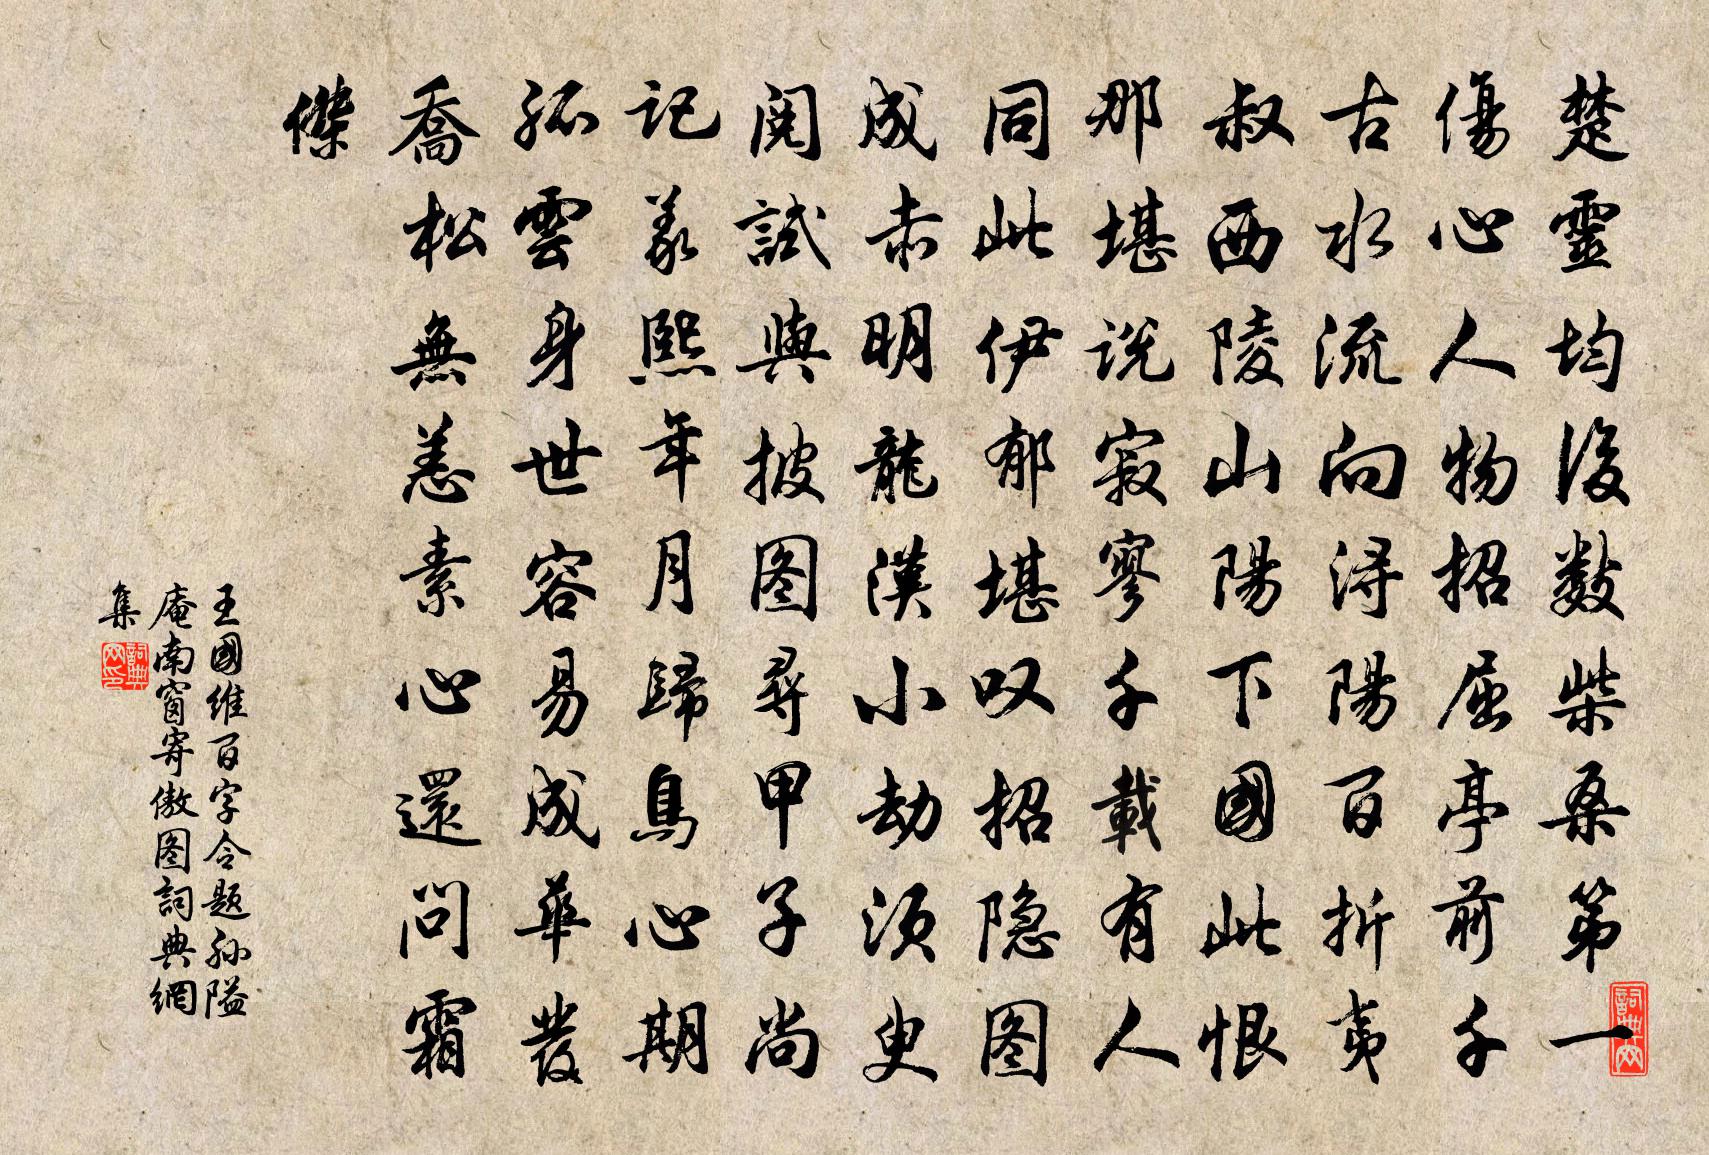 楚靈均後數柴桑第一
傷心人物招屈亭前千
古水流向浔陽百折夷
叔西陵山陽下國此恨
那堪説寂寥千載有人
同此伊郁堪叹招隐图
成赤明龍漢小劫須臾
閱試與披图尋甲子尚
記義熙年月歸鳥心期
孤雲身世容易成華發
喬松無恙素心還問霜
傑
王國維百字令題孙隘
庵南窗寄傲图詞典網
集
詞典网印
詞典网